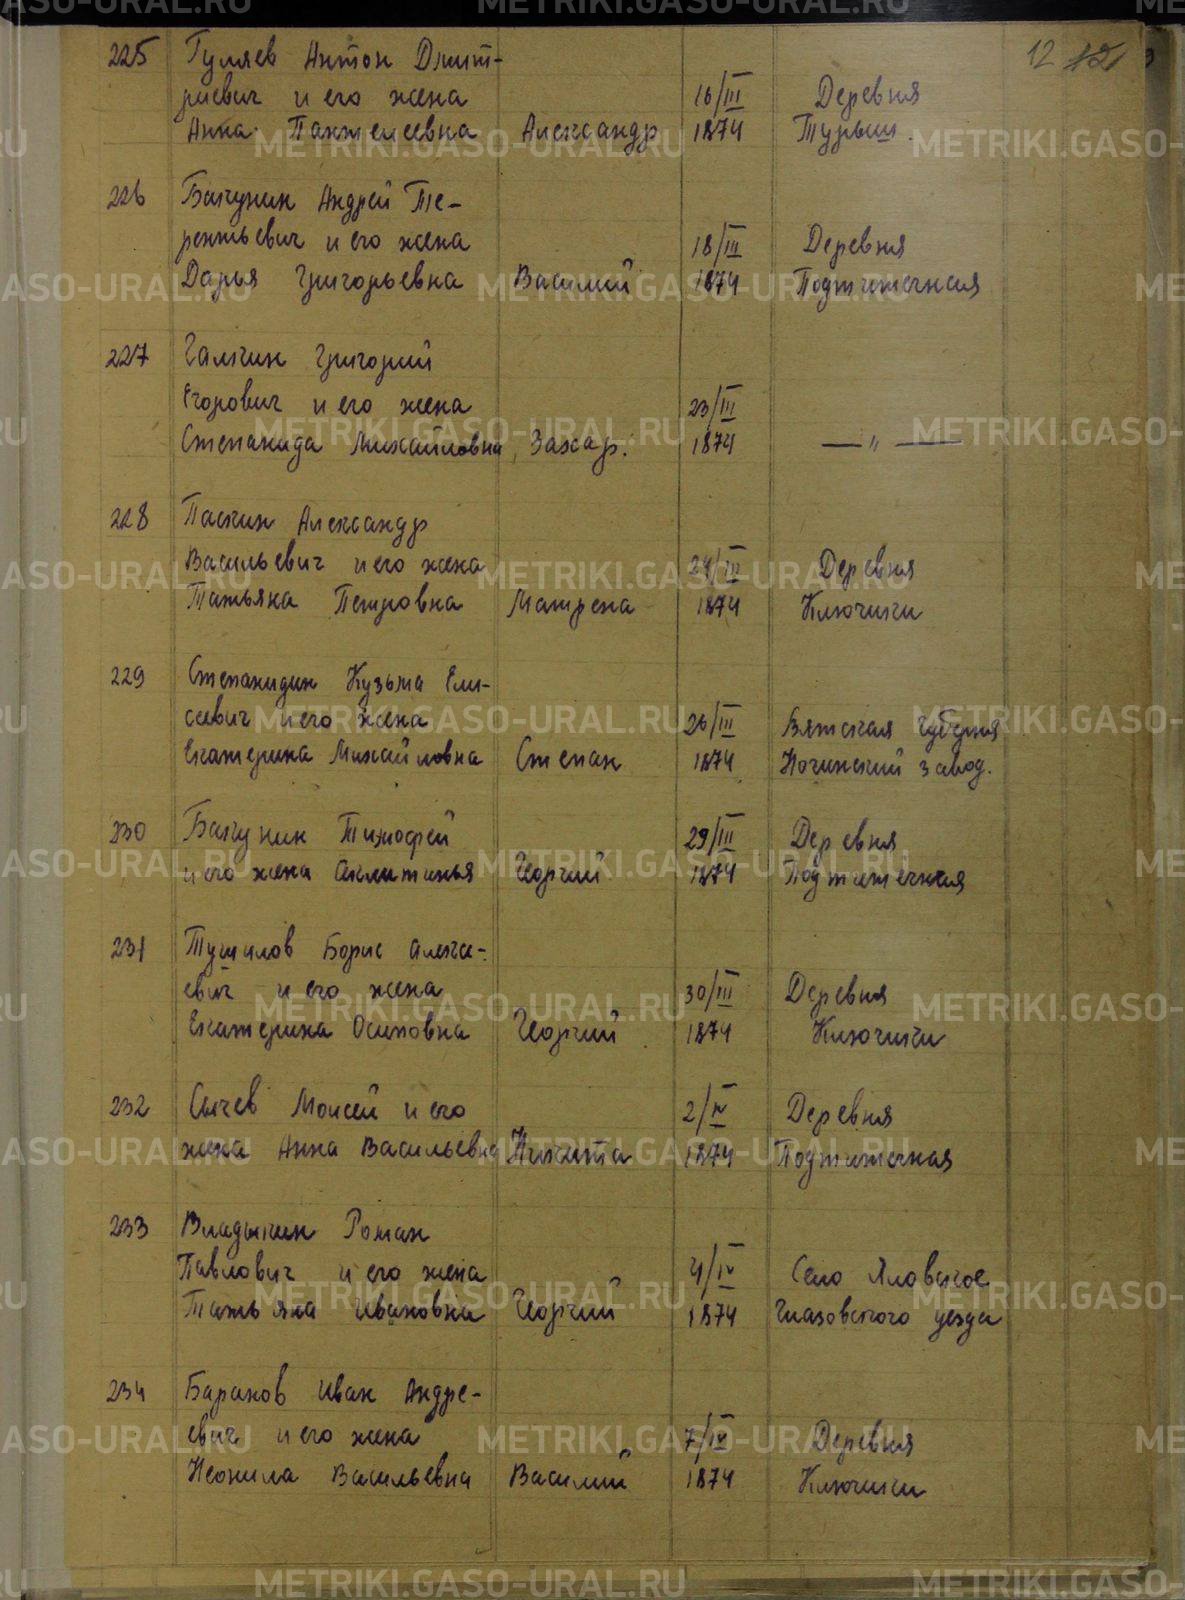 12
225 Гуляев Антон Дмит-
риевич и его жена 16/III Деревня
Анна Пантелеевна Александр 1874 Турыш
226 Бакунин Андрей Те-
рентьевич и его жена 18/III Деревня
Дарья Григорьевна Василий 1874 Подтитечная
227 Галкин Григорий
Егорович и его жена 23/III
Степанида Михайловна Захар. 1874 — „ —
228 Паскин Александр
Васильевич и его жена 24/III Деревня
Татьяна Петровна Матрена 1874 Ключики
229 Степанидин Кузьма Ели-
сеевич и его жена 26/III Вятская губерния
Екатерина Михайловна Степан 1874 завод.
230 Бакунин Тимофей 29/III Деревня
и его жена Акилитинья Георгий 1874 Подтитечная
231 Тушилов Борис Алекс-
евич и его жена 30/III Деревня
Екатерина Осиповна Георгий 1874 Ключики
232 Сычев Моисей и его 2/IV Деревня
жена Анна Васильевна Никита 1874 Подтитечная
233 Владыкин Роман
Павлович и его жена 4/IV Село Яловское
Татьяна Ивановна Георгий 1874 Глазовского уезда
234 Баранов Иван Андре-
евич и его жена 7/IV Деревня
Неонила Васильевна Василий 1874 Ключики
METRIKI.GASO-URAL.RU